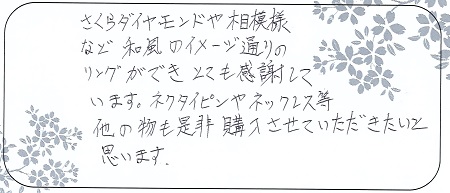 さくらダイヤモンドや相模様
など和風のイメージ通りの
リングができとても感謝して
います。ネクタイピンやネックレス等
他の物も是非購入させていただきたいと
思います.